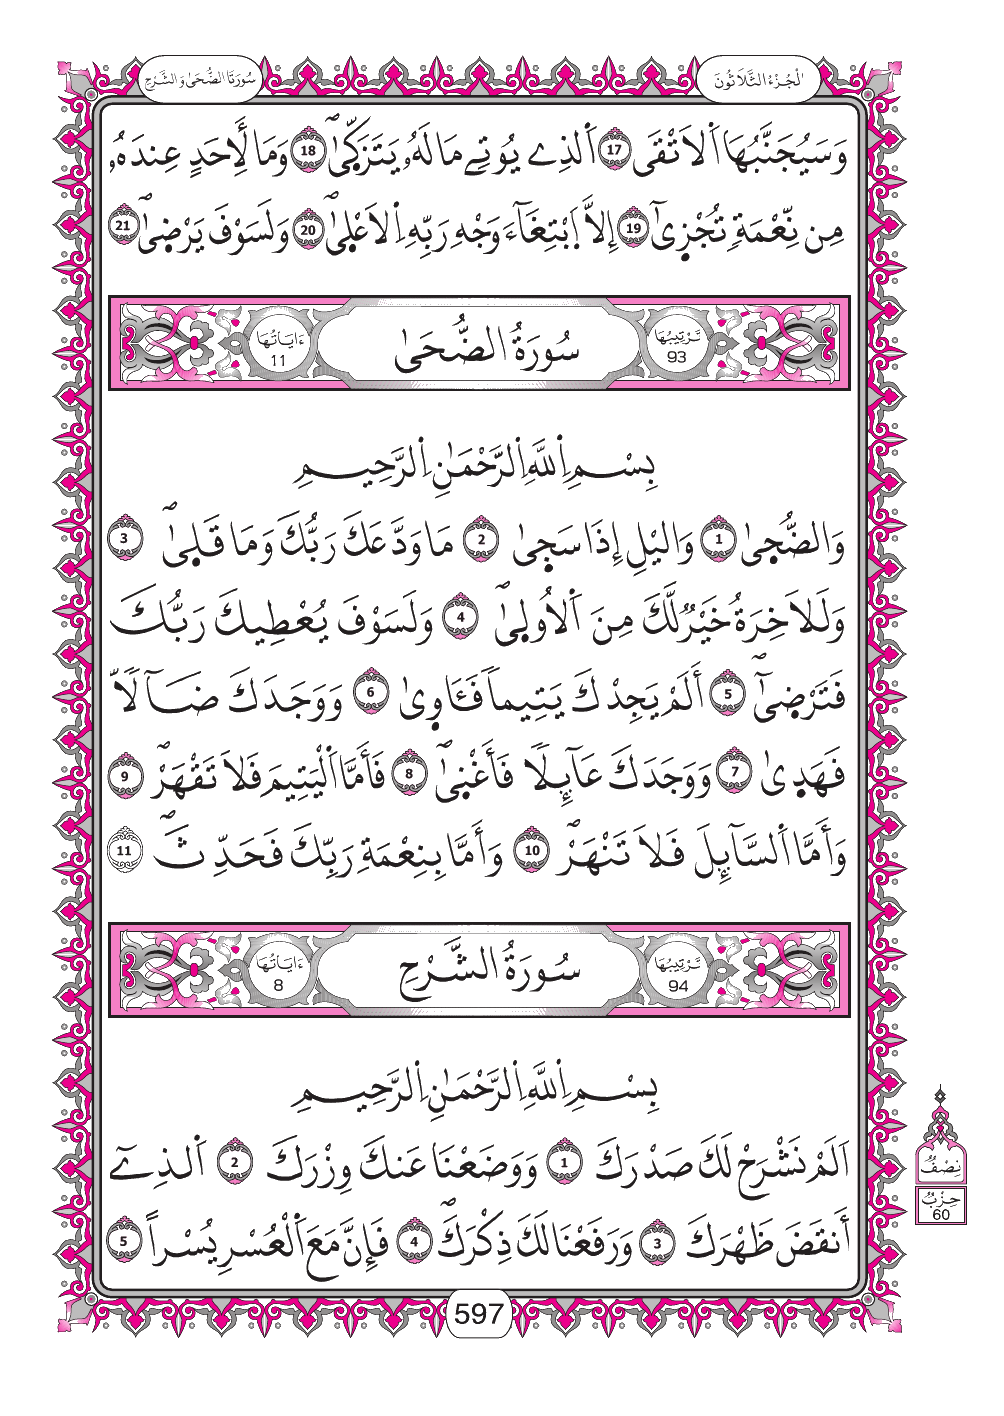 اُلْجُزْءُ الثَّلَاثُونَ
سُورَتَا الضُّحَىٰ وَالشَّرْحِ
وَسَيُجَنَّبُهَا اَ۬لَاتْقَى 17 اَ۬لذِے يُوتِے مَا لَهُۥ يَتَزَكّ۪ىٰۖ 18 وَمَا لِأَحَدٍ عِندَهُۥ
مِن نِّعْمَةٖ تُجْز۪ىٰٓ 19 إِلَّا اَ۪بْتِغَآءَ وَجْهِ رَبِّهِ اِ۬لَاعْل۪ىٰۖ 20 وَلَسَوْفَ يَرْض۪ىٰۖ 21
تَرْتِيبُهَا 93
سُورَةُ الضُّحَىٰ
ءَايَاتُهَا 11
بِسْمِ اِ۬للَّهِ اِ۬لرَّحْمَٰنِ اِ۬لرَّحِيمِ
وَالضُّح۪ىٰ 1 وَاليْلِ إِذَا سَج۪ىٰ 2 مَا وَدَّعَكَ رَبُّكَ وَمَا قَل۪ىٰۖ 3
وَلَلَاخِرَةُ خَيْرٞ لَّكَ مِنَ اَ۬لُاول۪ىٰۖ 4 وَلَسَوْفَ يُعْطِيكَ رَبُّكَ
فَتَرْض۪ىٰٓۖ 5 أَلَمْ يَجِدْكَ يَتِيماٗ فَـَٔاو۪ىٰ 6 وَوَجَدَكَ ضَآلّاٗ
فَهَد۪ىٰ 7 وَوَجَدَكَ عَآئِلاٗ فَأَغْن۪ىٰۖ 8 فَأَمَّا اَ۬لْيَتِيمَ فَلَا تَقْهَرْۖ 9
وَأَمَّا اَ۬لسَّآئِلَ فَلَا تَنْهَرْۖ 10 وَأَمَّا بِنِعْمَةِ رَبِّكَ فَحَدِّثْۖ 11
تَرْتِيبُهَا 94
سُورَةُ الشَّرْحِ
ءَايَاتُهَا 8
بِسْمِ اِ۬للَّهِ اِ۬لرَّحْمَٰنِ اِ۬لرَّحِيمِ
اَلَمْ نَشْرَحْ لَكَ صَدْرَكَ 1 وَوَضَعْنَا عَنكَ وِزْرَكَ 2 اَ۬لذِےٓ
أَنقَضَ ظَهْرَكَ 3 وَرَفَعْنَا لَكَ ذِكْرَكَۖ 4 فَإِنَّ مَعَ اَ۬لْعُسْرِ يُسْراً 5
نِصْفُ
حِزْبُ
60
597